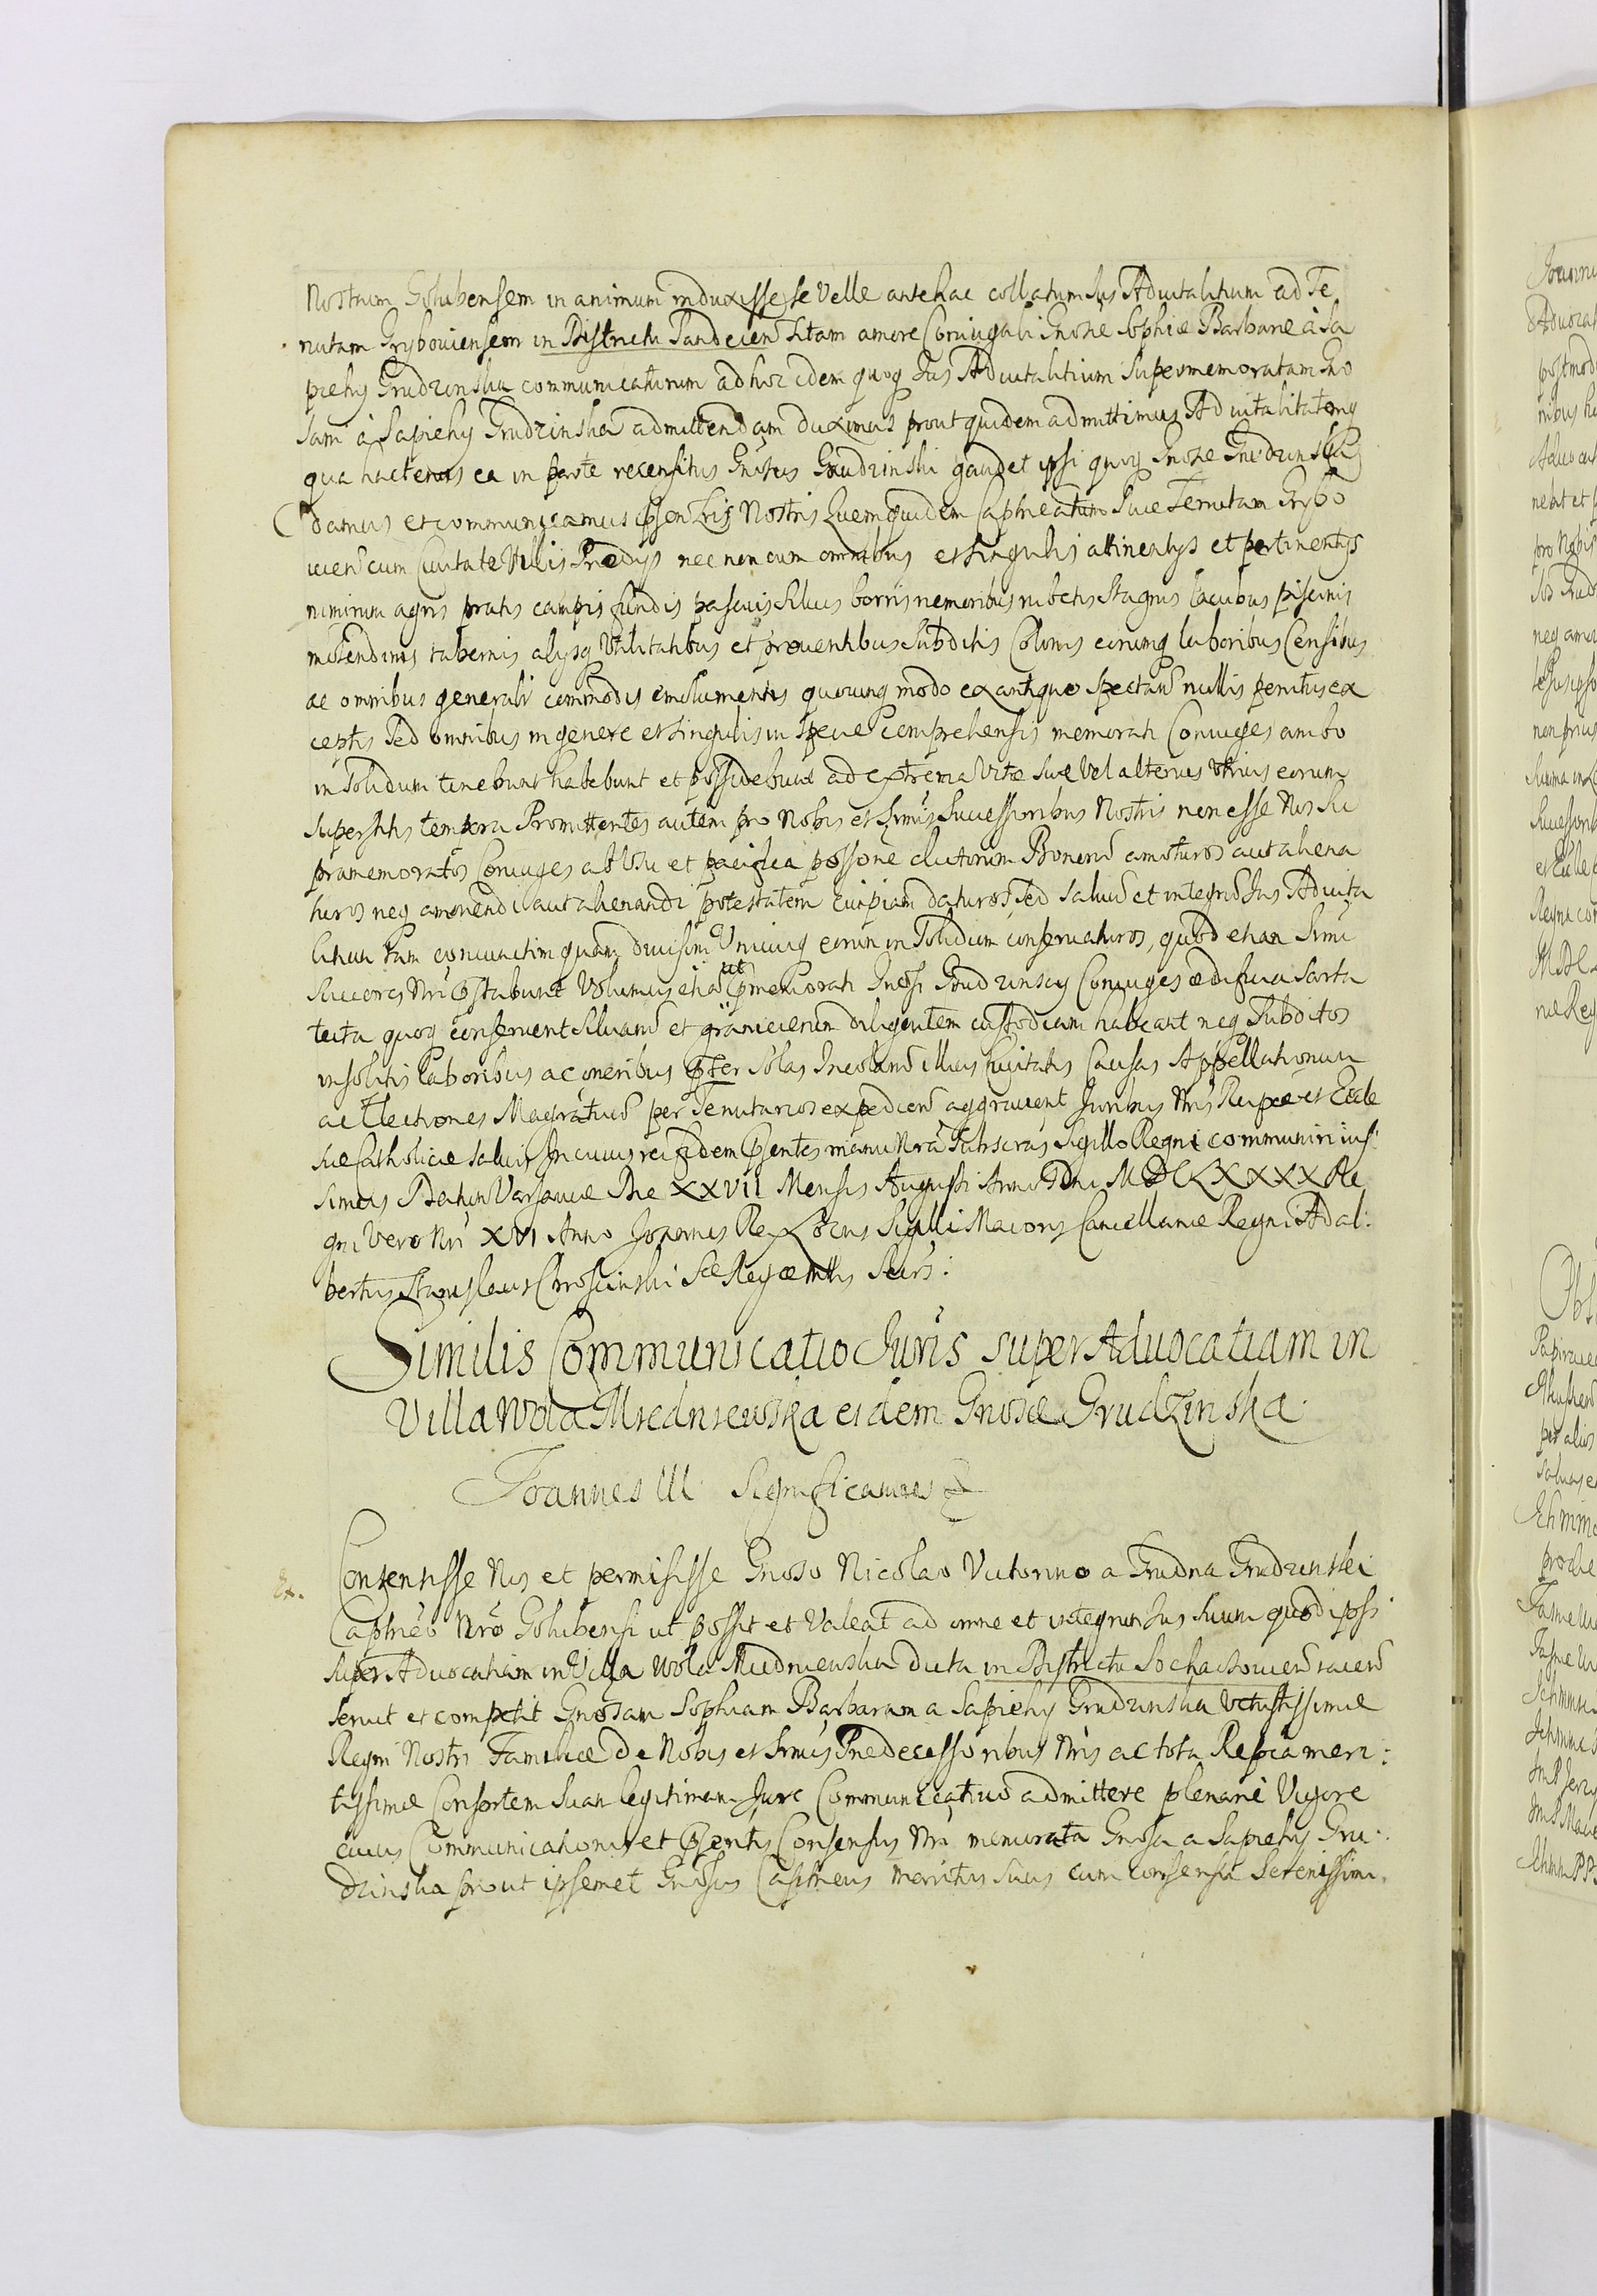 Nostrum Golubensem in animum induxisse, se velle antehac collatum Jus Advitalitium ad Te
nutam Grybouiensem in Districtu Sandecien sitam amore Coniugali Gnosae Sophiae Barbarae à Sa
piehy Grudzinska communicaturum ad hoc idem quoq Jus Advitalitium supermemoratam Gno
sam à Sapiehy Grudzinska admittendam duximus prout quidem admittimus Advitalitatemq
qua hactenus ea in parte recensitus Gnosus Grudzinski gaudet ipsi quoq Gnosae Grudzinska
damus et communicamus psentibus Lris Nostris Quemquidem Captneatum siue Tenutam Grybo
uien cum Ciuitate Villis Praedijs nec non cum omnibus et singulis attinentijs et pertinentijs
nimirum agris pratis campis fundis pascuis siluis borris nemoribus rubetis stagnis lacubus piscinis
molendinis tabernis alijsq Vtilitatibus et prouentibus Subditis Colonis eorumq laboribus Censibus
ac omnibus generali commodis emolumentis quouinq modo ex antiquo spectan nullis penitus ex
ceptis sed omnibus in genere et singulis in specie comprehensis memorati Coniuges ambo
in solidum tenebunt habebunt et possidebunt ad extrema vitae suae vel alterius vtrius eorum
superstitis tempora Promittentes autem pro Nobis et Srmis Successoribus Nostris non esse Nos su
pramemoratos Coniuges ab Vsu et pacifica possone dictorum Bonorum amoturos aut aliena
turos neq amouendi aut alienandi potestatem cuipiam daturos sed saluum et integrum Jus Advita
litium tam coniunctim quam diuisim Vnicuiq eorum in solidum conseruaturos, quod etiam Srmi
Succores Nri pstabunt Volumus etia ut pmemorati Gnosi Grudzinscy Coniuges aedificia sarta
tecta quoq conseruent siluarum et granicierum diligentem custodiam habeant neq Subditos
insolitis laboribus ac oneribus pter solas Incolarum illius Ciuitatis Causas Appellationum
ac Electiones Magratuum per Tenutarios expedien aggrauent Juribus Nris Reipcae et Eccle
siae Catholicae saluis In cuius rei fidem psentes manu Nra subscras Sigillo Regni communiri ius
simus Datum Varsauiae Die XXVII Mensis Augusti Anno Dni MDCLXXXX Re
gni vero Nri XVI Anno Joannes Rex Locus Sigilli Maioris Cancellariae Regni Adal:
bertus Stanislaus Chroscinski Sae Regae Mttis Secrs:
Similis Communicatio Juris super Aduocatiam in
Villa Wola Miedniewska eidem Gnosae Grudzinska
Joannes III Significamus &
Consensisse Nos et permisisse Gnoso Nicolao Victorino a Grudna Grudzinski
Captneo Nro Golubensi ut possit et valeat ad omne et integrum Jus suum quod ipsi
super Aduocatiam in Villa Wola Miedniewska dicta in Districtu Sochaczouien iacen
seruit et competit Gnosam Sophiam Barbaram a Sapiehy Grudzinska Vetustissimae
Regni Nostri Familiae de Nobis et Srmis Praedecessoribus Nris ac tota Repca meri:
tissimae Consortem suam legitimam Jure Communicatiuo admittere plenarie Vigore
cuius Communicationis et psentis Consensus Nri memorata Gnosa a Sapiehy Gru:
dzinska prout ipsemet Gnosus Captneus Maritus suus cum consensu Serenissimi